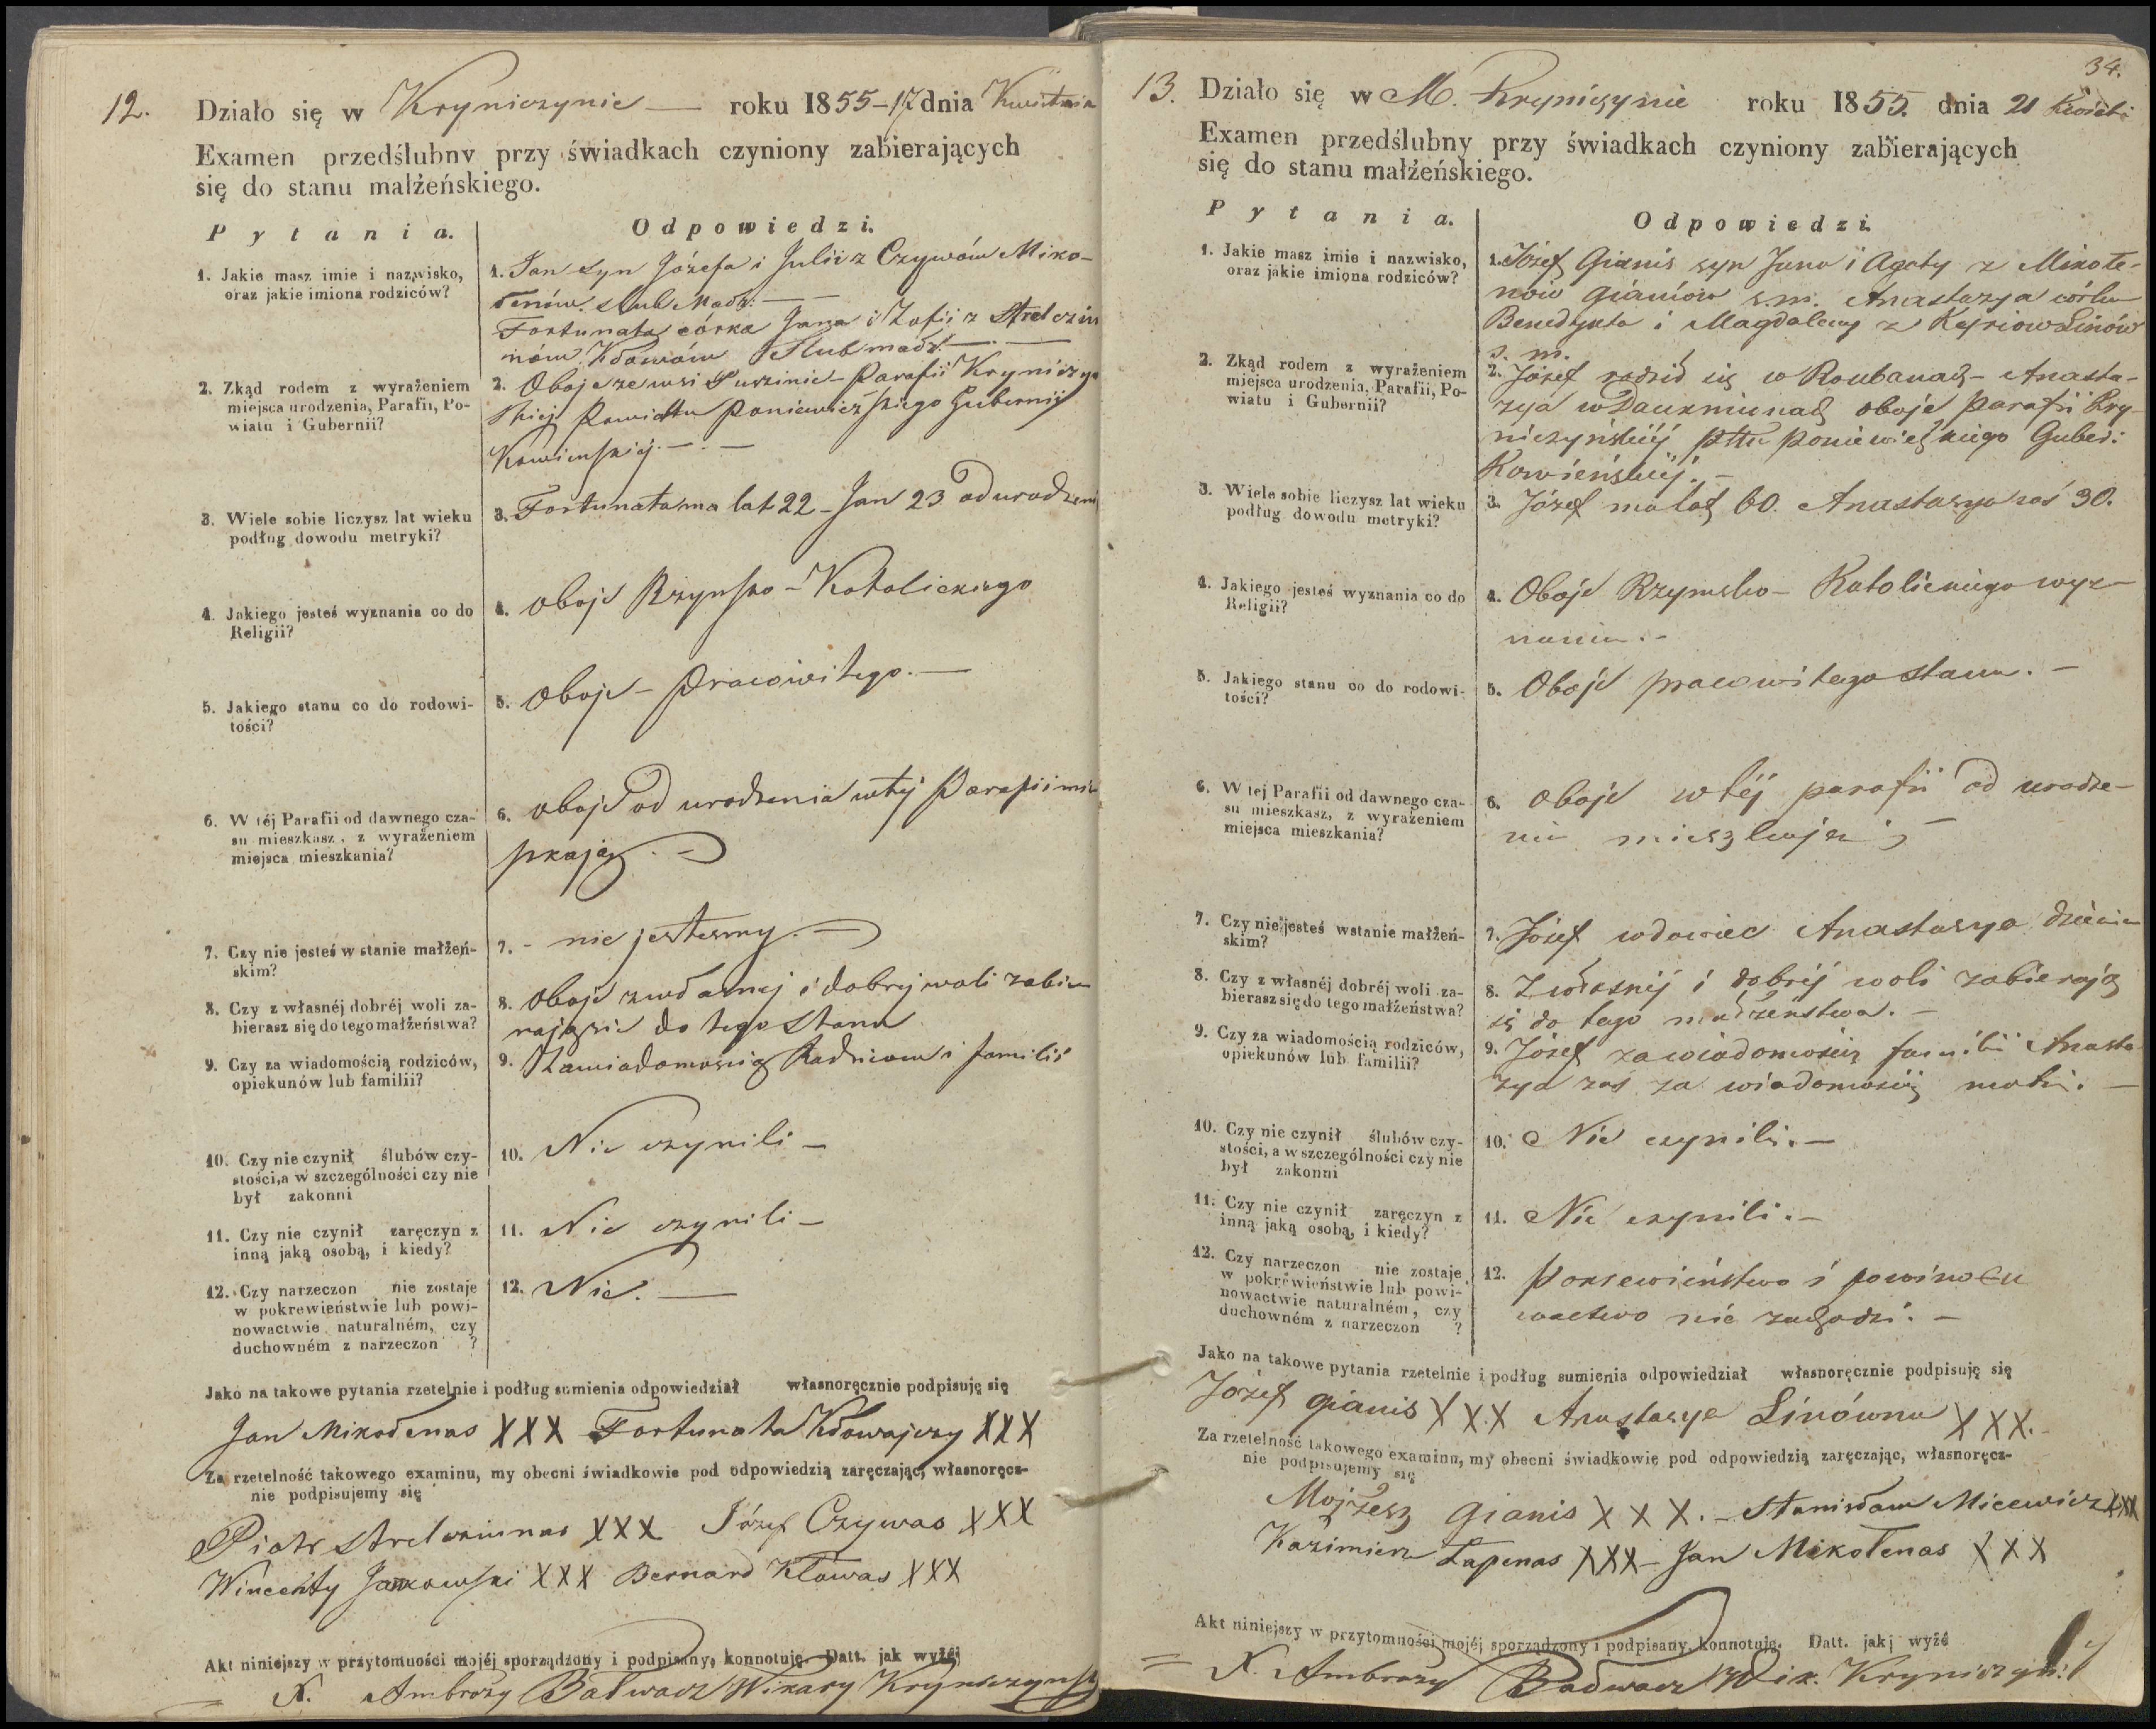 12. Działo się w Kryniczynie — roku 1855 - 17 dnia Kwietnia
Examen przedślubny przy świadkach czyniony zabierających
się do stanu małżeńskiego.
Pytania.
Odpowiedzi.
1. Jakie masz imie i nazwisko,
oraz jakie imiona rodziców?
1. Jan syn Józefa i Julii z Czywów Miko-
łenów. ślub. Małż. —
Fortunata córka Jana i Zofii z Strelcziu
nów Kławów Ślub małż. —
2. Zkąd rodem z wyrażeniem
miejsca urodzenia, Parafii, Po-
wiatu i Gubernii?
2. Oboje ze wsi Puszinie - Parafii Kryniczyń
skiej Powiattu Poniewiezskiego Gubernij
Kowienskiéj. —
3. Wiele sobie liczysz lat wieku
podług dowodu metryki?
3. Fortunata ma lat 22 - Jan 23 od urodzeni
4. Jakiego jesteś wyznania co do
Religii?
4. oboje Rzymsko - Katolickiego
5. Jakiego stanu co do rodowi-
tości?
5. oboje - Pracowitego. —
6. W téj Parafii od dawnego cza-
su mieszkasz, z wyrażeniem
miejsca mieszkania?
6. oboje od urodzenia w tej Parafii mie
szkają. —
7. Czy nie jesteś w stanie małżeń-
skim?
7. - nie jestesmy. —
8. Czy z własnéj dobréj woli za-
bierasz się do tego małżeństwa?
8. oboje z własnej i dobrej woli zabie
rają sie do tego Stanu
9. Czy za wiadomością rodziców,
opiekunów lub familii?
9. Zawiadomoscią Radzicow i familii
10. Czy nie czynił ślubów czy-
stości, a w szczególności czy nie
był zakonni
10. Nie czynili —
11. Czy nie czynił zaręczyn z
inną jaką osobą, i kiedy?
11. Nie czynili —
12. Czy narzeczon nie zostaje
w pokrewieństwie lub powi-
nowactwie naturalném, czy
duchowném z narzeczon ?
12. Nie. —
Jako na takowe pytania rzetelnie i podług sumienia odpowiedział własnoręcznie podpisuję się
Jan Mikołenas XXX Fortunata Kławajczy XXX
Za rzetelność takowego examinu, my obecni świadkowie pod odpowiedzią zaręczając, własnoręcz-
nie podpisujemy się
Piotr Strelcziunas XXX Józef Czywas XXX
Wincenty Jankowski XXX Bernard Kławas XXX
Akt niniejszy w przytomności mojéj sporządzony i podpisany, konnotuję. Datt. jak wyżéj
X. Ambroży Bałwacz Wikary Kryniczynsk
34.
13. Działo się w M. Kryniczynie roku 1855. dnia 21 Kwiet:
Examen przedślubny przy świadkach czyniony zabierających
się do stanu małżeńskiego.
Pytania.
Odpowiedzi.
1. Jakie masz imie i nazwisko,
oraz jakie imiona rodziców?
1. Józef Gianis syn Jana i Agaty z Mikołe-
nów Gianiow s. m. Anastazya córka
Benedykta i Magdaleny z Kejriow Linów
s. m.
2. Zkąd rodem z wyrażeniem
miejsca urodzenia, Parafii, Po-
wiatu i Gubernii?
2. Józef rodził się w Roubanach - Anasta-
zya w Daukniunach oboje parafii Kry-
niczyńskiéj Pttu Poniewiezkiego Guber:
Kowieńskiéj. —
3. Wiele sobie liczysz lat wieku
podług dowodu metryki?
3. Józef ma lat 60. Anastazya zaś 30.
4. Jakiego jesteś wyznania co do
Religii?
4. Oboje Rzymsko - Katolickiego wyz-
nania. -
5. Jakiego stanu co do rodowi-
tości?
5. Oboje pracowitego stanu. —
6. W tej Parafii od dawnego cza-
su mieszkasz, z wyrażeniem
miejsca mieszkania?
6. oboje w téj parafii od urodze-
nia mieszkują; —
7. Czy nie jesteś wstanie małżeń-
skim?
7. Józef wdowiec Anastazya
8. Czy z własnéj dobréj woli za-
bierasz się do tego małżeństwa?
8. Z własnéj i dobréj woli zabierają
się do tego małżeństwa. —
9. Czy za wiadomością rodziców,
opiekunów lub familii?
9. Józef za wiadomością familii Anasta
zya zaś za wiadomością matki. —
10. Czy nie czynił ślubów czy-
stości, a w szczególności czy nie
był zakonni
10. Nie czynili. —
11. Czy nie czynił zaręczyn z
inną jaką osobą, i kiedy?
11. Nie czynili. —
12. Czy narzeczon nie zostaje
w pokrewieństwie lub powi-
nowactwie naturalném, czy
duchowném z narzeczon ?
12. Pokrewieństwo i
wactwo nie zachodzi. —
Jako na takowe pytania rzetelnie i podług sumienia odpowiedział własnoręcznie podpisuję się
Józef Gianis XXX Anastazya Linówna XXX.
Za rzetelność takowego examinu, my obecni świadkowie pod odpowiedzią zaręczając, własnoręcz-
nie podpisujemy się
Mojżesz Gianis XXX. - Stanisław Micewicz XXX
Kazimierz Łapenas XXX - Jan Mikołenas XXX
Akt niniejszy w przytomności mojéj sporządzony i podpisany, konnotuję. Datt. jakj wyżé
X. Ambroży Bałwacz Wik. Kryniczyń: